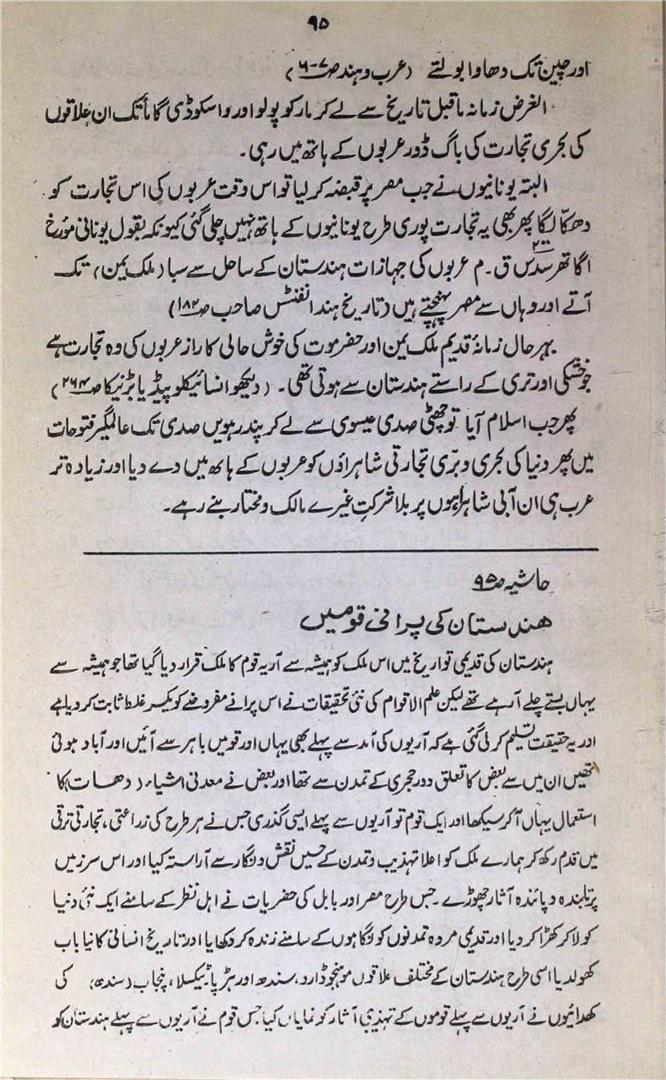 ۹۵
اور چین تک دھاوا بولتے (عرب و ہند ص۷-۶)
الغرض زمانہ ماقبل تاریخ سے لے کر مارکو پولو اور واسکوڈی گاما تک ان علاقوں
کی بحری تجارت کی باگ ڈور عربوں کے ہاتھ میں رہی۔
البتہ یونانیوں نے جب مصر پر قبضہ کر لیا تو اس وقت عربوں کی اس تجارت کو
دھکا لگا پھر بھی یہ تجارت پوری طرح یونانیوں کے ہاتھ نہیں چلی گئی کیونکہ بقول یونانی مؤرخ
اگاتھر سدس ق۔م عربوں کی جہازات ہندستان کے ساحل سے سبا (ملک یمن) تک
آتے اور وہاں سے مصر پہنچتے ہیں (تاریخ ہند الفنٹس صاحب ص۱۸۲)
بہر حال زمانۂ قدیم ملک یمن اور حضرموت کی خوش حالی کا راز عربوں کی وہ تجارت ہے
جو خشکی اور تری کے راستے ہندستان سے ہوتی تھی۔ (دیکھو انسائیکلوپیڈیا برٹنیکا ص۲۶۴)
پھر جب اسلام آیا تو چھٹی صدی عیسوی سے لے کر پندرہویں صدی تک عالمگیر فتوحات
میں پھر دنیا کی بحری و برّی تجارتی شاہراؤں کو عربوں کے ہاتھ میں دے دیا اور زیادہ تر
عرب ہی ان آبی شاہراہوں پر بلا شرکتِ غیرے مالک و مختار بنے رہے۔
حاشیہ ص۹۵
ھندستان کی پرانی قومیں
ہندستان کی قدیمی تواریخ میں اس ملک کو ہمیشہ سے آریہ قوم کا ملک قرار دیا گیا تھا جو ہمیشہ سے
یہاں بستے چلے آ رہے تھے لیکن علم الاقوام کی نئی تحقیقات نے اس پرانے مفروضے کو یکسر غلط ثابت کر دیا ہے
اور یہ حقیقت تسلیم کر لی گئی ہے کہ آریوں کی آمد سے پہلے بھی یہاں اور قومیں باہر سے آئیں اور آباد ہوئی
تھیں ان میں سے بعض کا تعلق دور حجری کے تمدن سے تھا اور بعض نے معدنی اشیاء (دھات) کا
استعمال یہاں آ کر سیکھا اور ایک قوم تو آریوں سے پہلے ایسی گذری جس نے ہر طرح کی زراعتی، تجارتی ترقی
میں قدم رکھ کر ہمارے ملک کو اعلا تہذیب و تمدن کے حسیں نقش و نگار سے آراستہ کیا اور اس سرزمیں
پر تابندہ و پائندہ آثار چھوڑے۔ جس طرح مصر اور بابل کی حضریات نے اہل نظر کے سامنے ایک نئی دنیا
کو لا کر کھڑا کر دیا اور قدیمی مردہ تمدنوں کو نگاہوں کے سامنے زندہ کر دکھایا اور تاریخ انسانی کا نیا باب
کھولدیا اسی طرح ہندستان کے مختلف علاقوں موہنجوڈارد، سندھ اور ہڑپا ٹیکسلا، پنجاب (سندھ) کی
کھدائیوں نے آریوں سے پہلے قوموں کے تہذیبی آثار کو نمایاں کیا جس قوم نے آریوں سے پہلے ہندستان کو